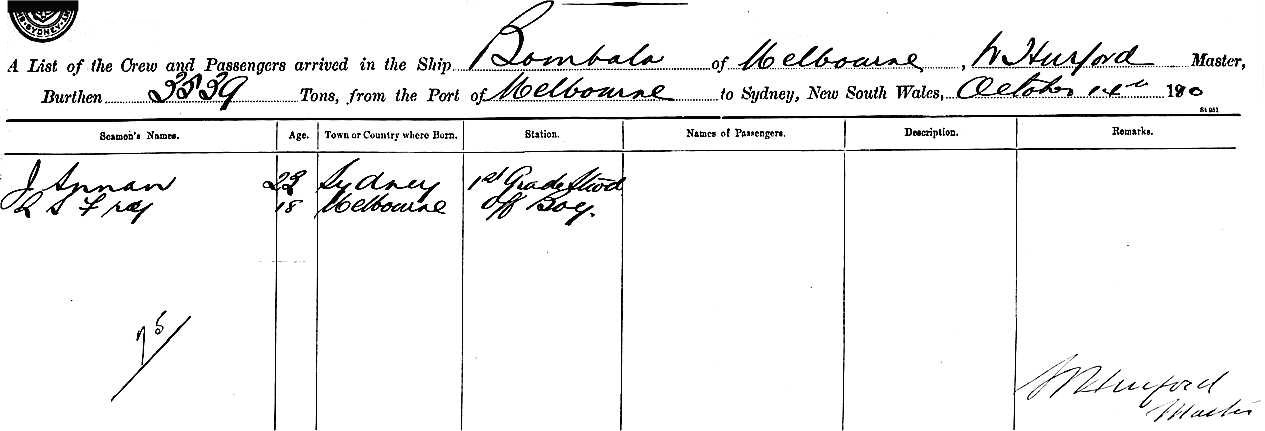 SYDNEY
A List of the Crew and Passengers arrived in the Ship Bombala of Melbourne, W Hurford Master,
Burthen 3539 Tons, from the Port of Melbourne to Sydney, New South Wales, October 14th 190
St 951
Seamen's Names. Age. Town or Country where Born. Station. Names of Passengers. Description. Remarks.
J Annan 22 Sydney 1st Grade Stwd
L S Fray 18 Melbourne Off Boy.
75
W Hurford
Master